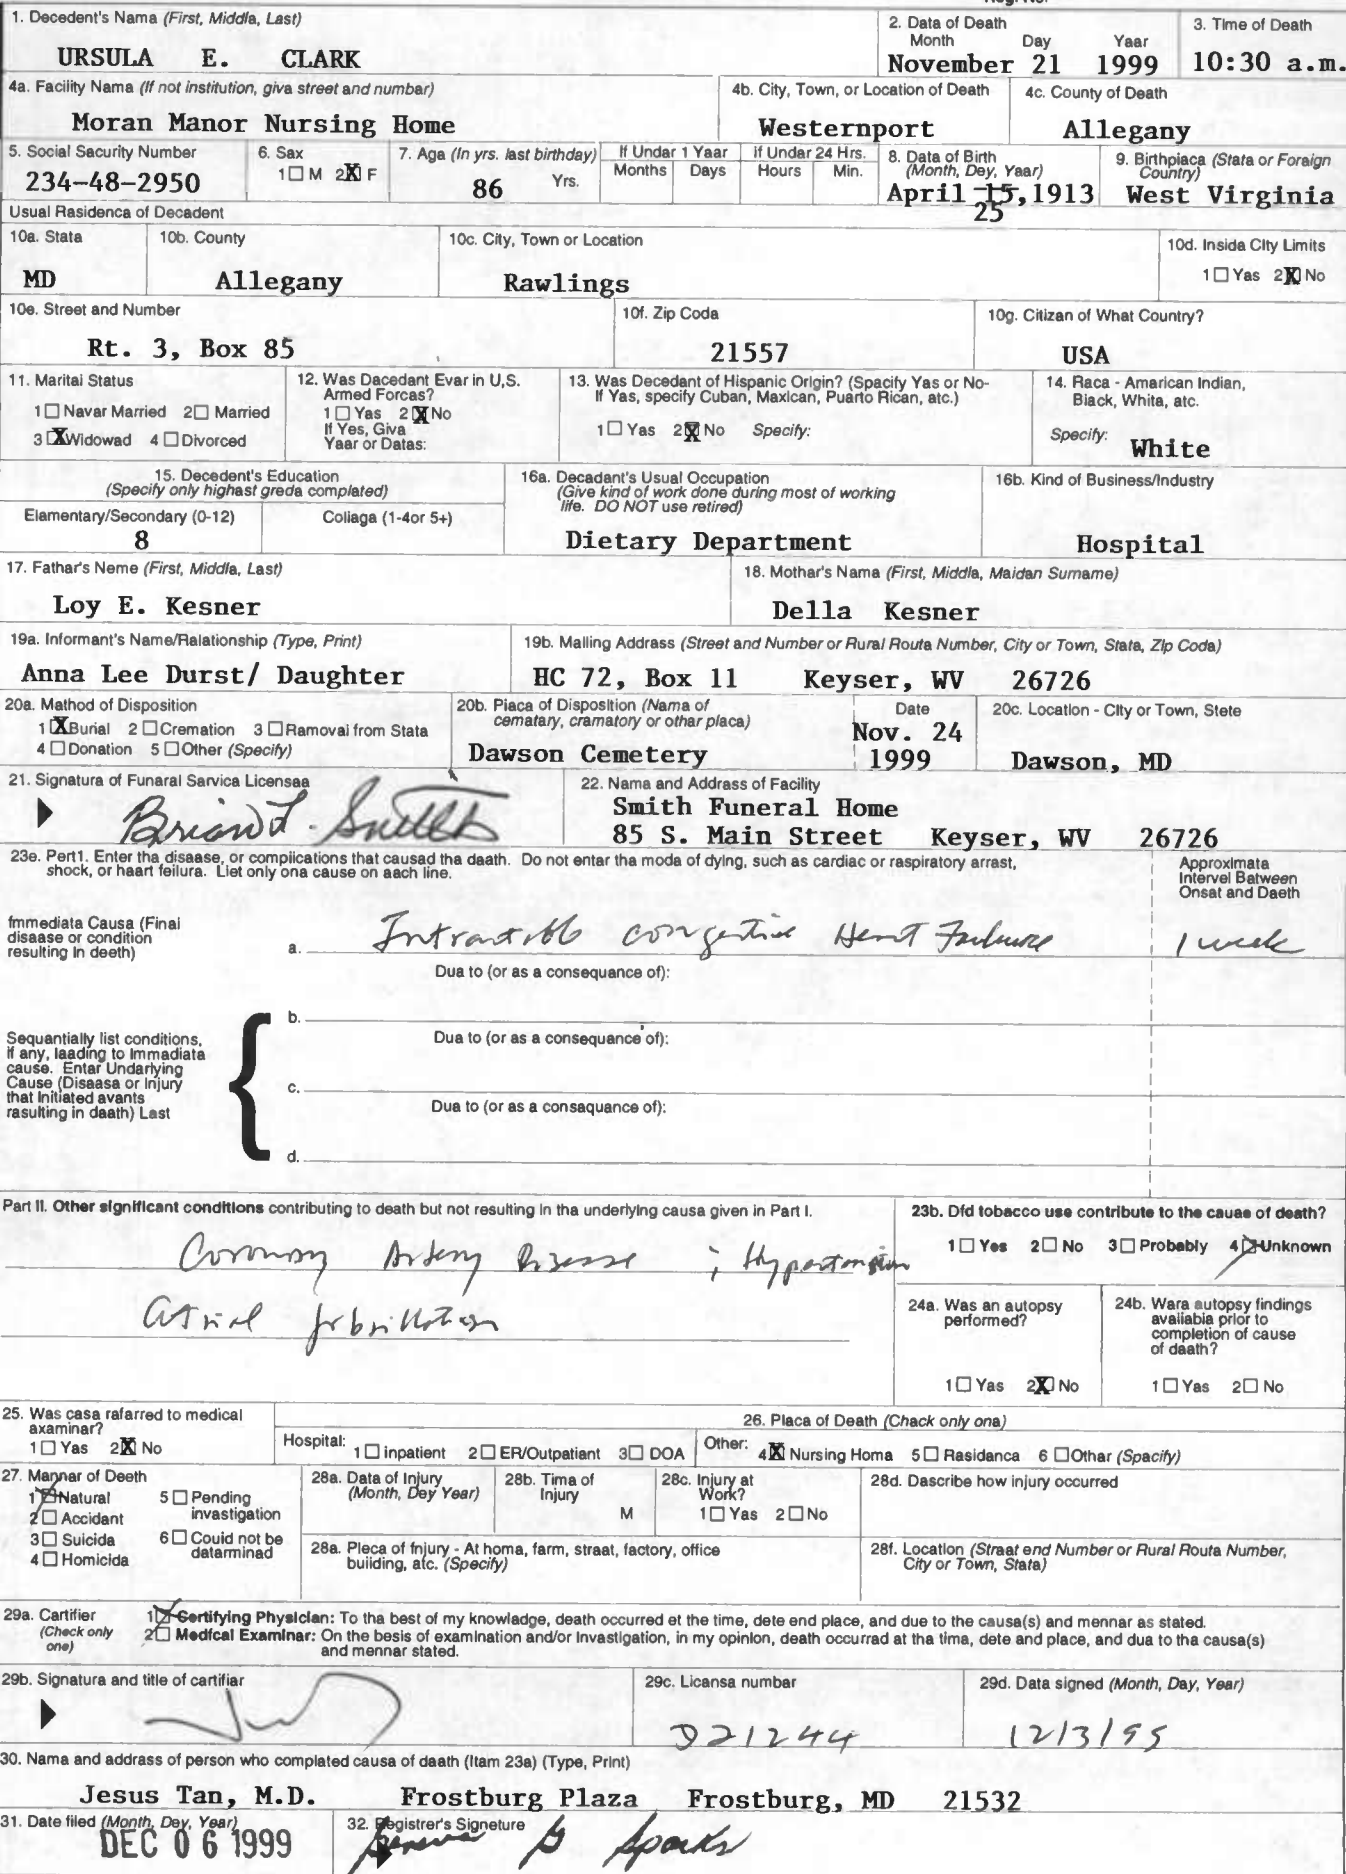 1. Decedent's Name (First, Middla, Last)
URSULA E. CLARK
2. Data of Death
Month Day Yaar
November 21 1999
3. Time of Death
10:30 a.m.
4a. Facility Name (If not institution, giva street and numbar)
Moran Manor Nursing Home
4b. City, Town, or Location of Death
Westernport
4c. County of Death
Allegany
5. Social Sacurity Number
234-48-2950
6. Sax
1☐ M 2☒ F
7. Aga (In yrs. last birthday)
86 Yrs.
If Undar 1 Yaar
Months Days
If Undar 24 Hrs.
Hours Min.
8. Data of Birth
(Month, Dey, Yaar)
April 15, 1913
25
9. Birthpiaca (Stata or Foraign
Country)
West Virginia
Usual Rasidenca of Decadent
10a. Stata
MD
10b. County
Allegany
10c. City, Town or Location
Rawlings
10d. Insida City Limits
1☐ Yas 2☒ No
10e. Street and Number
Rt. 3, Box 85
10f. Zip Coda
21557
10g. Citizan of What Country?
USA
11. Maritai Status
1☐ Navar Married 2☐ Married
3☒ Widowad 4☐ Divorced
12. Was Dacedant Evar in U,S.
Armed Forcas?
1☐ Yas 2☒ No
If Yes, Giva
Yaar or Datas:
13. Was Decedant of Hispanic Origin? (Spacify Yas or No-
If Yas, specify Cuban, Maxican, Puarto Rican, atc.)
1☐ Yas 2☒ No Specify:
14. Raca - Amarican Indian,
Biack, Whita, atc.
Specify: White
15. Decedent's Education
(Specify only highast greda complated)
Elamentary/Secondary (0-12)
8
Coliaga (1-4or 5+)
16a. Decadant's Usual Occupation
(Give kind of work done during most of working
life. DO NOT use retired)
Dietary Department
16b. Kind of Business/Industry
Hospital
17. Fathar's Neme (First, Middla, Last)
Loy E. Kesner
18. Mothar's Nama (First, Middla, Maidan Surname)
Della Kesner
19a. Informant's Name/Ralationship (Type, Print)
Anna Lee Durst/ Daughter
19b. Maliing Addrass (Straet and Number or Rural Routa Number, City or Town, Stata, Zip Coda)
HC 72, Box 11 Keyser, WV 26726
20a. Mathod of Disposition
1☒ Burial 2☐ Cremation 3☐ Ramovai from Stata
4☐ Donation 5☐ Other (Specify)
20b. Piaca of Disposition (Nama of
cematary, cramatory or othar placa)
Dawson Cemetery
Date
Nov. 24
1999
20c. Location - City or Town, Stete
Dawson, MD
21. Signatura of Funaral Sarvica Licensaa
Brian L. Smith
22. Nama and Addrass of Facility
Smith Funeral Home
85 S. Main Street Keyser, WV 26726
23e. Pert1. Enter tha disaase, or compiications that causad tha daath. Do not entar tha moda of dying, such as cardiac or raspiratory arrast,
shock, or haart feilura. Liet only ona cause on aach line.
Approximata
Intervel Batween
Onsat and Daeth
fmmediata Causa (Finai
disaase or condition
resulting in deeth)
a. Intractible congestive Heart Failure 1 week
Dua to (or as a consequance of):
b.
Dua to (or as a consequance of):
Sequantially list conditions,
if any, laading to Immadiata
cause. Entar Undarlying
Cause (Disaasa or Injury
that Initiated avants
rasulting in daath) Last
c.
Dua to (or as a consaquance of):
d.
Part II. Other significant conditions contributing to death but not resulting in tha underlying causa given in Part I.
Coronary Artery Disease ; Hypertension
Atrial fibrillation
23b. Dfd tobacco use contribute to the cauae of death?
1☐ Yes 2☐ No 3☐ Probably 4☒ Unknown
24a. Was an autopsy
performed?
1☐ Yas 2☒ No
24b. Wara autopsy findings
avaiiabia prior to
completion of cause
of daath?
1☐ Yas 2☐ No
25. Was casa rafarred to medical
axaminar?
1☐ Yas 2☒ No
26. Placa of Death (Chack only ona)
Hospital: 1☐ inpatient 2☐ ER/Outpatiant 3☐ DOA
Other: 4☒ Nursing Homa 5☐ Rasidanca 6☐ Othar (Specify)
27. Mannar of Deeth
1☒ Natural
2☐ Accidant
3☐ Suicida
4☐ Homicida
5☐ Pending
invastigation
6☐ Couid not be
datarminad
28a. Data of Injury
(Month, Dey Year)
28b. Tima of
Injury
M
28c. Injury at
Work?
1☐ Yas 2☐ No
28d. Dascribe how injury occurred
28a. Pleca of fnjury - At homa, farm, straat, factory, office
buiiding, atc. (Specify)
28f. Location (Straat end Number or Rural Routa Number,
City or Town, Stata)
29a. Cartifier
(Check only
one)
1☒ Certifying Physician: To tha best of my knowladge, death occurred et the time, dete end place, and due to the causa(s) and mennar as stated.
2☐ Medfcal Examinar: On the besis of examination and/or Invastigation, in my opinion, death occurrad at tha tima, dete and placa, and dua to tha causa(s)
and mennar stated.
29b. Signatura and titla of cartifiar
29c. Licansa numbar
D21244
29d. Data signed (Month, Day, Year)
12/3/99
30. Nama and addrass of person who complated causa of daath (Itam 23a) (Type, Print)
Jesus Tan, M.D. Frostburg Plaza Frostburg, MD 21532
31. Date filed (Month, Dey, Year)
DEC 06 1999
32. Registrer's Signeture
G Sparks